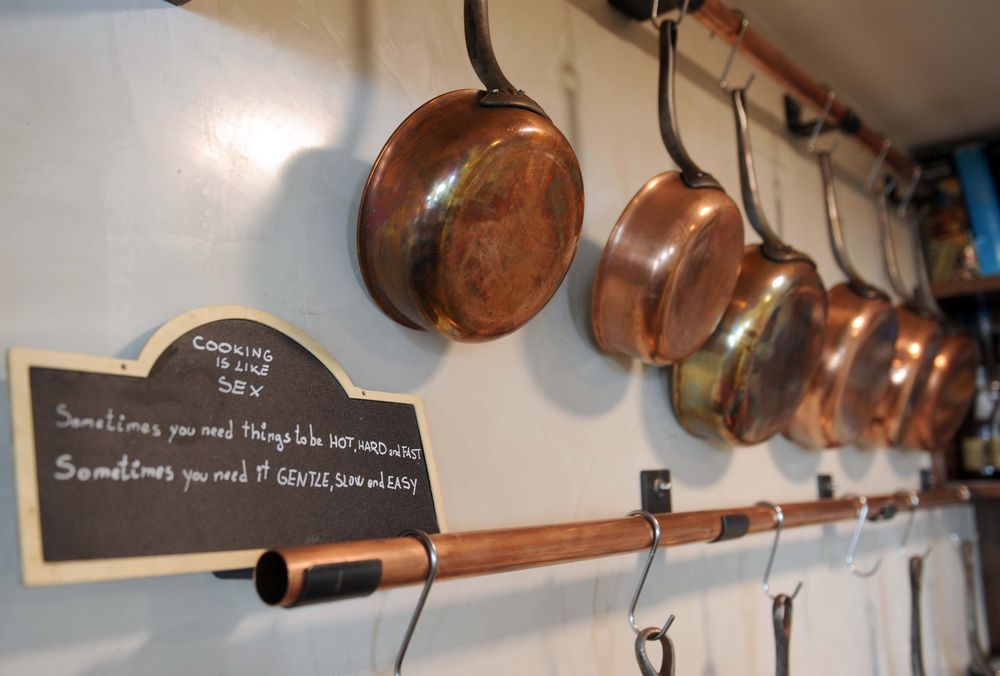 COOKING
IS LIKE
SEX
Sometimes you need things to be HOT, HARD and FAST
Sometimes you need it GENTLE, SLOW and EASY